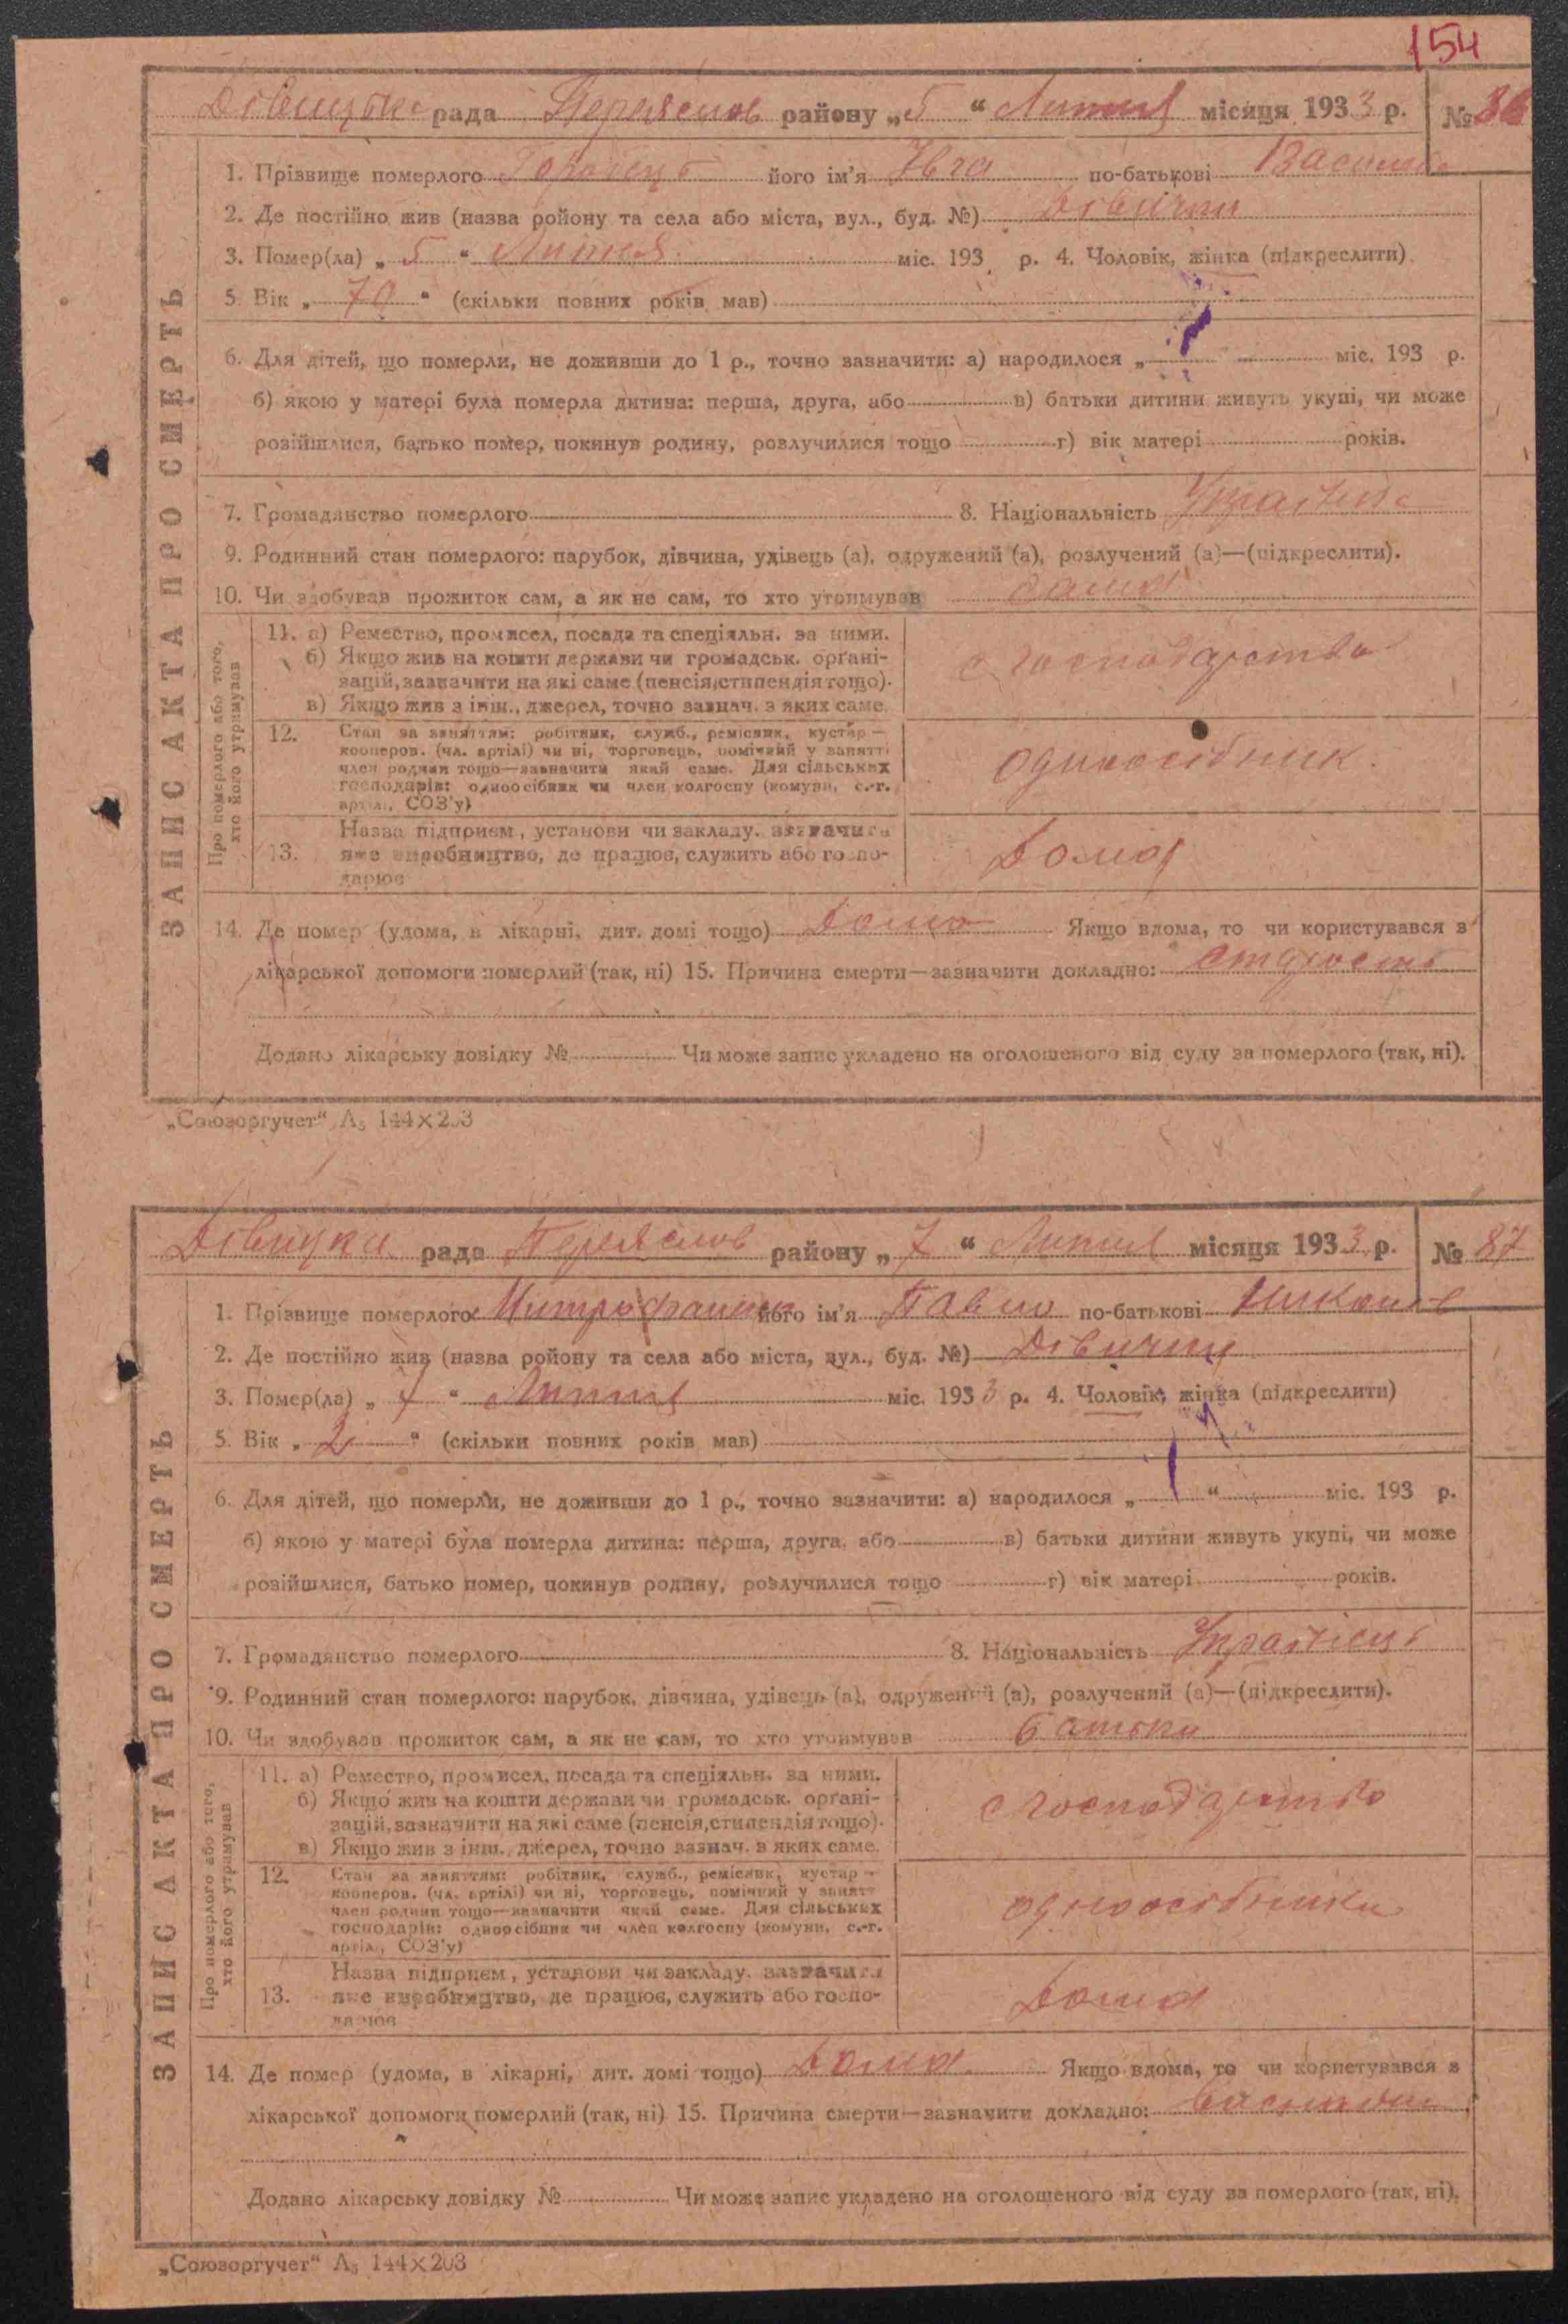 154
рада Переяслов району „5“ Липня місяця 1933 р. № 86
1. Прізвище померлого Горобець його ім'я Явга по-батькові
2. Де постійно жив (назва ройону та села або міста, вул., буд. №) Дівички
3. Помер(ла) „5“ Липня міс. 193 р. 4. Чоловік, жінка (підкреслити)
5. Вік „70“ (скільки повних років мав)
6. Для дітей, що померли, не доживши до 1 р., точно зазначити: а) народилося „ міс. 193 р.
б) якою у матері була померла дитина: перша, друга, або в) батьки дитини живуть укупі, чи може
розійшлися, батько помер, покинув родину, розлучилися тощо г) вік матері років.
7. Громадянство померлого 8. Національність
9. Родинний стан померлого: парубок, дівчина, удівець (а), одружений (а), розлучений (а)—(підкреслити).
10. Чи здобував прожиток сам, а як не сам, то хто утримував сама
ЗАПИС АКТА ПРО СМЕРТЬ
Про померлого або того, хто його утримував
11. а) Ремество, промисел, посада та спеціяльн. за ними.
б) Якщо жив на кошти держави чи громадськ. орґані-
зацій, зазначити на які саме (пенсія, стипендія тощо).
в) Якщо жив з інш., джерел, точно зазнач. з яких саме.
с господарства
12. Стан за заняттям: робітник, служб., ремісник, кустар —
кооперов. (чл. артілі) чи ні, торговець, помічний у занятті
член родини тощо—зазначити який саме. Для сільських
господарів: одноосібник чи член колгоспу (комуни, с.-г.
артіл., СОЗ'у)
одноосібник
13. Назва підприєм, установи чи закладу. зазначити
яке виробництво, де працює, служить або госпо-
дарює
Дома
14. Де помер (удома, в лікарні, дит. домі тощо) Дома Якщо вдома, то чи користувався з
лікарської допомоги померлий (так, ні) 15. Причина смерти—зазначити докладно: старость
Додано лікарську довідку № Чи може запис укладено на оголошеного від суду за померлого (так, ні).
„Союзоргучет“ А₅ 144×203
рада Переяслов району „7“ Липня місяця 1933 р. № 87
1. Прізвище померлого його ім'я Павло по-батькові
2. Де постійно жив (назва ройону та села або міста, вул., буд. №) Дівички
3. Помер(ла) „7“ Липня міс. 1933 р. 4. Чоловік, жінка (підкреслити)
5. Вік „2“ (скільки повних років мав)
6. Для дітей, що померли, не доживши до 1 р., точно зазначити: а) народилося „ “ міс. 193 р.
б) якою у матері була померла дитина: перша, друга, або в) батьки дитини живуть укупі, чи може
розійшлися, батько помер, покинув родину, розлучилися тощо г) вік матері років.
7. Громадянство померлого 8. Національність Українець
9. Родинний стан померлого: парубок, дівчина, удівець (а), одружений (а), розлучений (а)—(підкреслити).
10. Чи здобував прожиток сам, а як не сам, то хто утримував батьки
ЗАПИС АКТА ПРО СМЕРТЬ
Про померлого або того, хто його утримував
11. а) Ремество, промисел, посада та спеціяльн. за ними.
б) Якщо жив на кошти держави чи громадськ. орґані-
зацій, зазначити на які саме (пенсія, стипендія тощо).
в) Якщо жив з інш., джерел, точно зазнач. з яких саме.
с господарства
12. Стан за заняттям: робітник, служб., ремісник, кустар —
кооперов. (чл. артілі) чи ні, торговець, помічний у занятті
член родини тощо—зазначити який саме. Для сільських
господарів: одноосібник чи член колгоспу (комуни, с.-г.
артіл., СОЗ'у)
одноосібники
13. Назва підприєм, установи чи закладу. зазначити
яке виробництво, де працює, служить або госпо-
дарює
Дома
14. Де помер (удома, в лікарні, дит. домі тощо) Дома Якщо вдома, то чи користувався з
лікарської допомоги померлий (так, ні) 15. Причина смерти—зазначити докладно:
Додано лікарську довідку № Чи може запис укладено на оголошеного від суду за померлого (так, ні).
„Союзоргучет“ А₅ 144×203